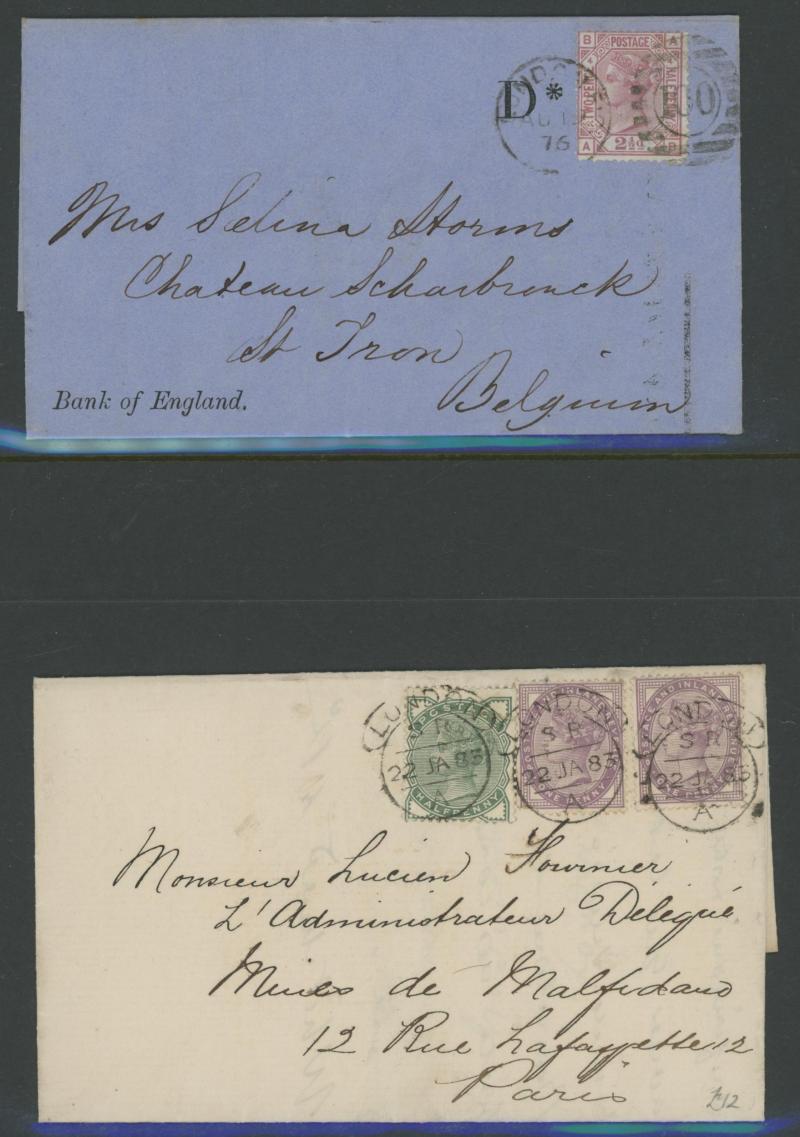 D*
LONDON
AU 1
76
B POSTAGE A
TWOPENCE HALFPENNY
A 2½d B
Mrs Selina Storms
Chateau Scharbronck
St Tron
Belgium
Bank of England.
LONDON
22 JA 83
A
POSTAGE
HALFPENNY
LONDON
S.R
22 JA 83
A
ONE PENNY
LONDON
S R
22 JA 83
A
POSTAGE AND INLAND
Monsieur Lucien Fournier
L'Administrateur Délégué
Mines de Malfidano
12 Rue Lafayette 12
Paris
£12